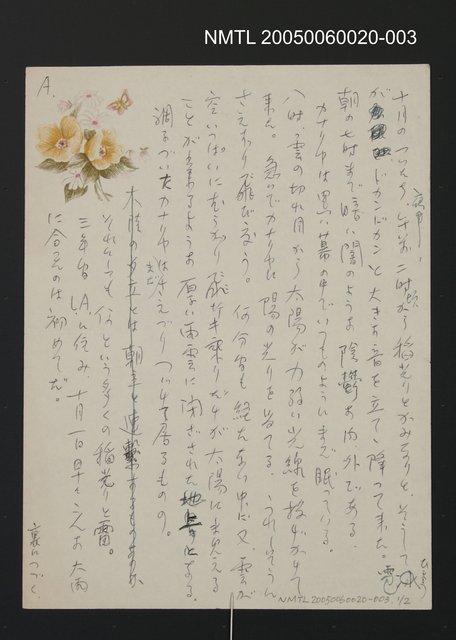 NMTL 20050060020-003
A.
十月のついたち、午前二時頃から稲光りとかみなりと、そして
夜中
ひょう
が ドカンドカンと大きな音を立て、降って来た。
朝の七時まで暗い闇のような陰鬱な内外である。
カナリヤは黒い幕の中でいつものようにまだ眠っている。
八時、雲の切れ目から太陽が力弱い光線を投げかけて
来た。急いでカナリヤに陽の光りを当てる。うれしそうに
さえずり飛びまう。何分間も経たない中に又、雲が
空いっぱいに広がり飛行キ乗りだけが太陽に出会える
ことが出来るような厚い雨雲に閉ざされた地上となる。
調子づいたカナリヤはまださえづりつづけて居るものの。
木陸の夕立とは朝まで連繫するものなのか
それにしても何という多くの稲光りと雷。
三年台LAに住み十月一日早々こんな大雨
に合うのは初めてだ。
裏につづく
NMTL 20050060020-003 1/2